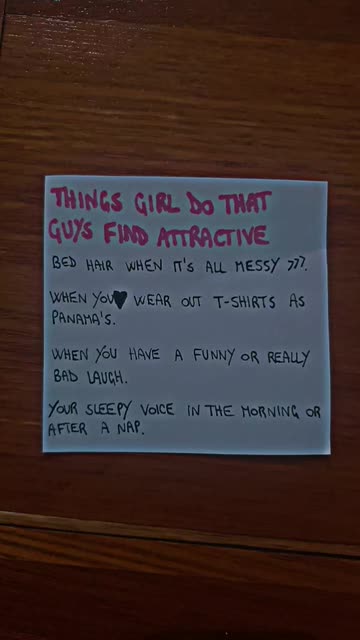 THINGS GIRL DO THAT
GUYS FIND ATTRACTIVE
BED HAIR WHEN IT'S ALL MESSY >>>.
WHEN YOU♥ WEAR OUT T-SHIRTS AS
PANAMA'S.
WHEN YOU HAVE A FUNNY OR REALLY
BAD LAUGH.
YOUR SLEEPY VOICE IN THE MORNING OR
AFTER A NAP.